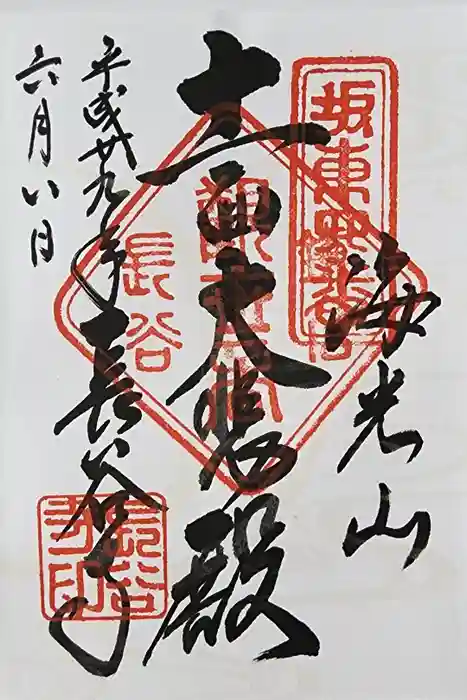 坂東四番
海光山
十一面大悲殿
長谷
長谷寺
平成廿九年
六月八日
長谷寺印